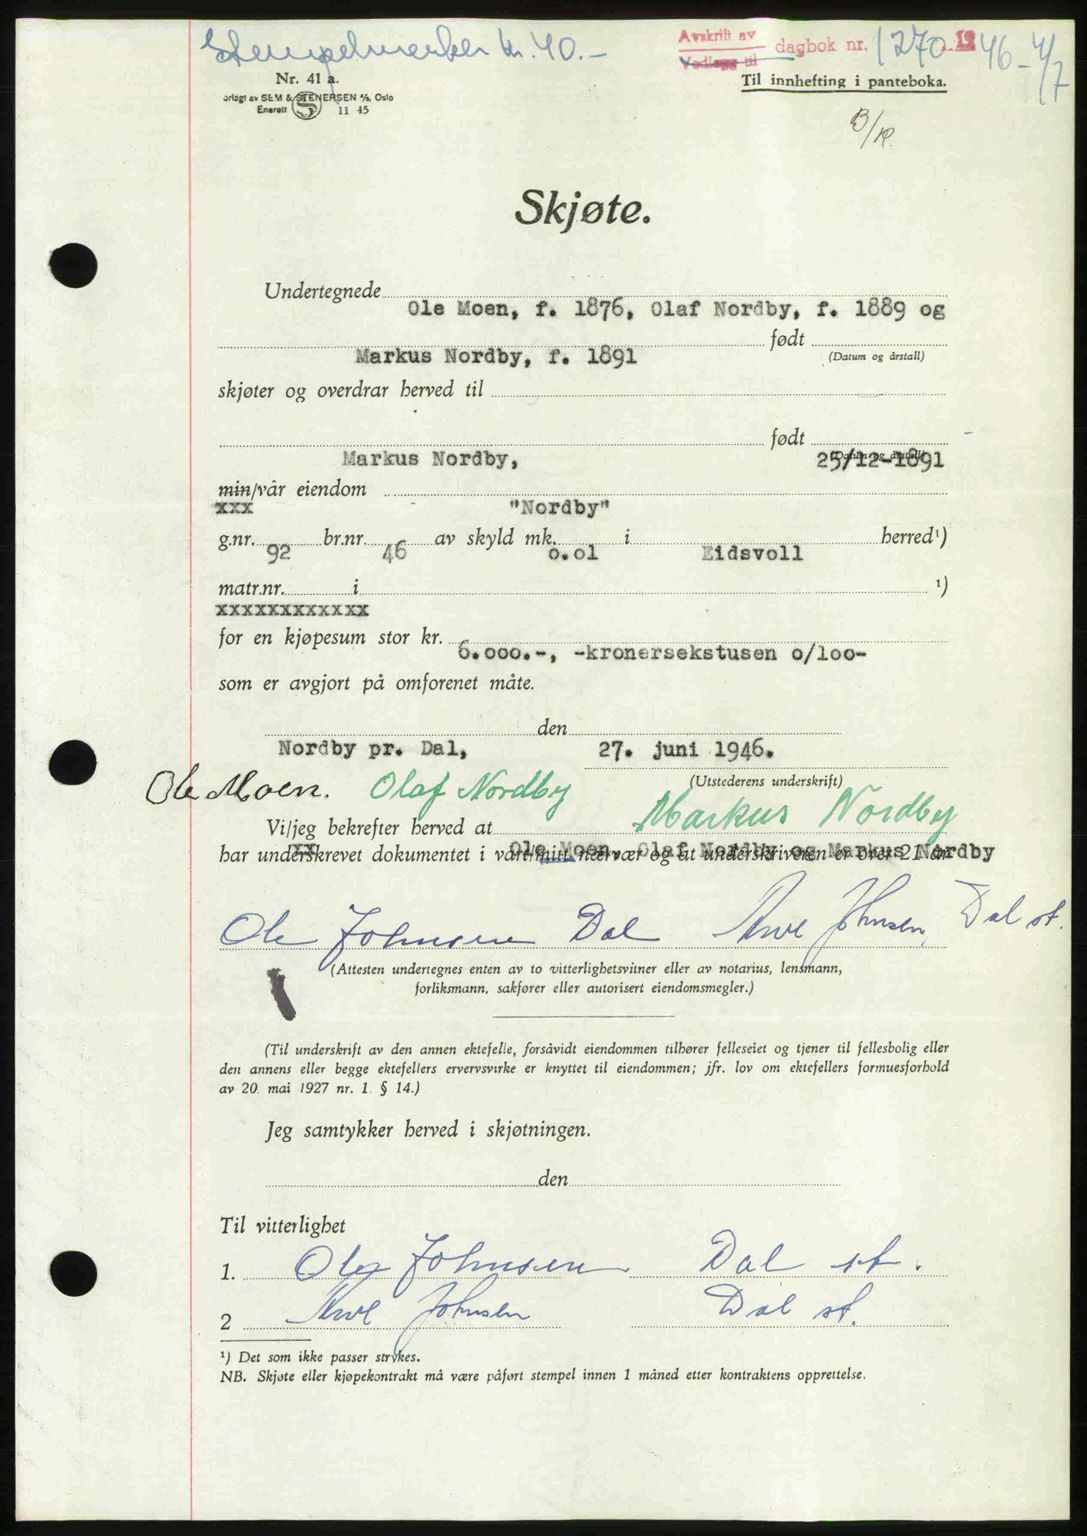 Stempelmerker kr. 40.-
Avskrift av
Vedlegg til
dagbok nr. 1270 1946 - 4/7
Nr. 41 a.
orlagt av SEM & STENERSEN A/S, Oslo
Enerett S 11 45
Til innhefting i panteboka.
Skjøte.
Undertegnede
Ole Moen, f. 1876, Olaf Nordby, f. 1889 og
født
Markus Nordby, f. 1891 (Datum og årstall)
skjøter og overdrar herved til
født
Markus Nordby, 25/12-1891
(Datum og årstall)
min/vår eiendom
xxx "Nordby"
g.nr. 92 br.nr. 46 av skyld mk. o.o1 i Eidsvoll herred¹)
matr.nr. i ¹)
xxxxxxxxxxxx
for en kjøpesum stor kr. 6.ooo.-, -kronersekstusen o/1oo-
som er avgjort på omforenet måte.
den
Nordby pr. Dal, 27. juni 1946.
(Utstederens underskrift)
Ole Moen. Olaf Nordby Markus Nordby
Vi/jeg bekrefter herved at
xx Ole Moen, Olaf Nordby og Markus Nordby
har underskrevet dokumentet i vårt/mitt nærvær og at underskriveren er over 21 år
Ole Johnsen Dal Arve Johnsen, Dal st.
(Attesten undertegnes enten av to vitterlighetsvitner eller av notarius, lensmann,
forliksmann, sakfører eller autorisert eiendomsmegler.)
(Til underskrift av den annen ektefelle, forsåvidt eiendommen tilhører felleseiet og tjener til fellesbolig eller
den annens eller begge ektefellers ervervsvirke er knyttet til eiendommen; jfr. lov om ektefellers formuesforhold
av 20. mai 1927 nr. 1. § 14.)
Jeg samtykker herved i skjøtningen.
den
Til vitterlighet
1. Ole Johnsen Dal st.
2 Arve Johnsen Dal st.
¹) Det som ikke passer strykes.
NB. Skjøte eller kjøpekontrakt må være påført stempel innen 1 måned etter kontraktens opprettelse.